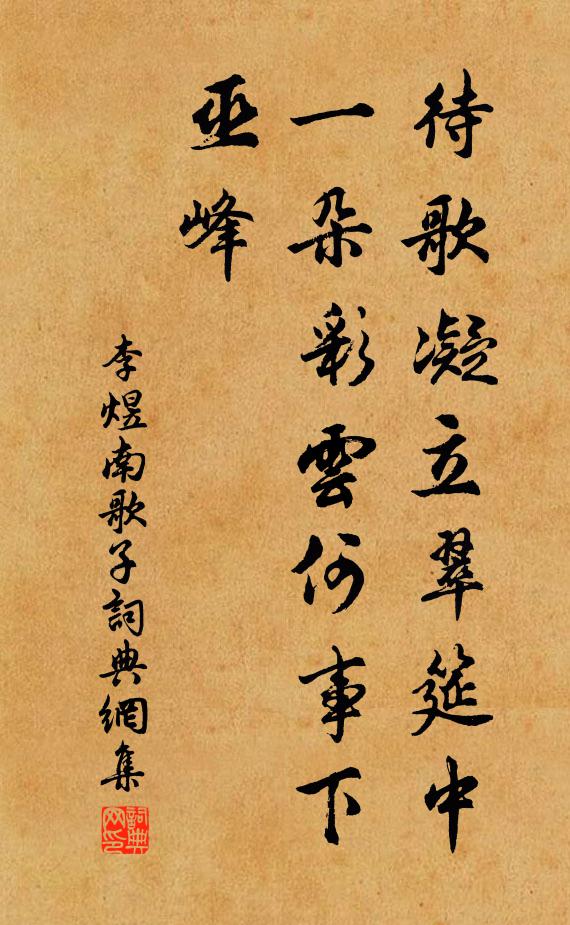 待歌凝立翠筵中
一朵彩雲何事下
巫峰
李煜南歌子詞典網集
詞典网印